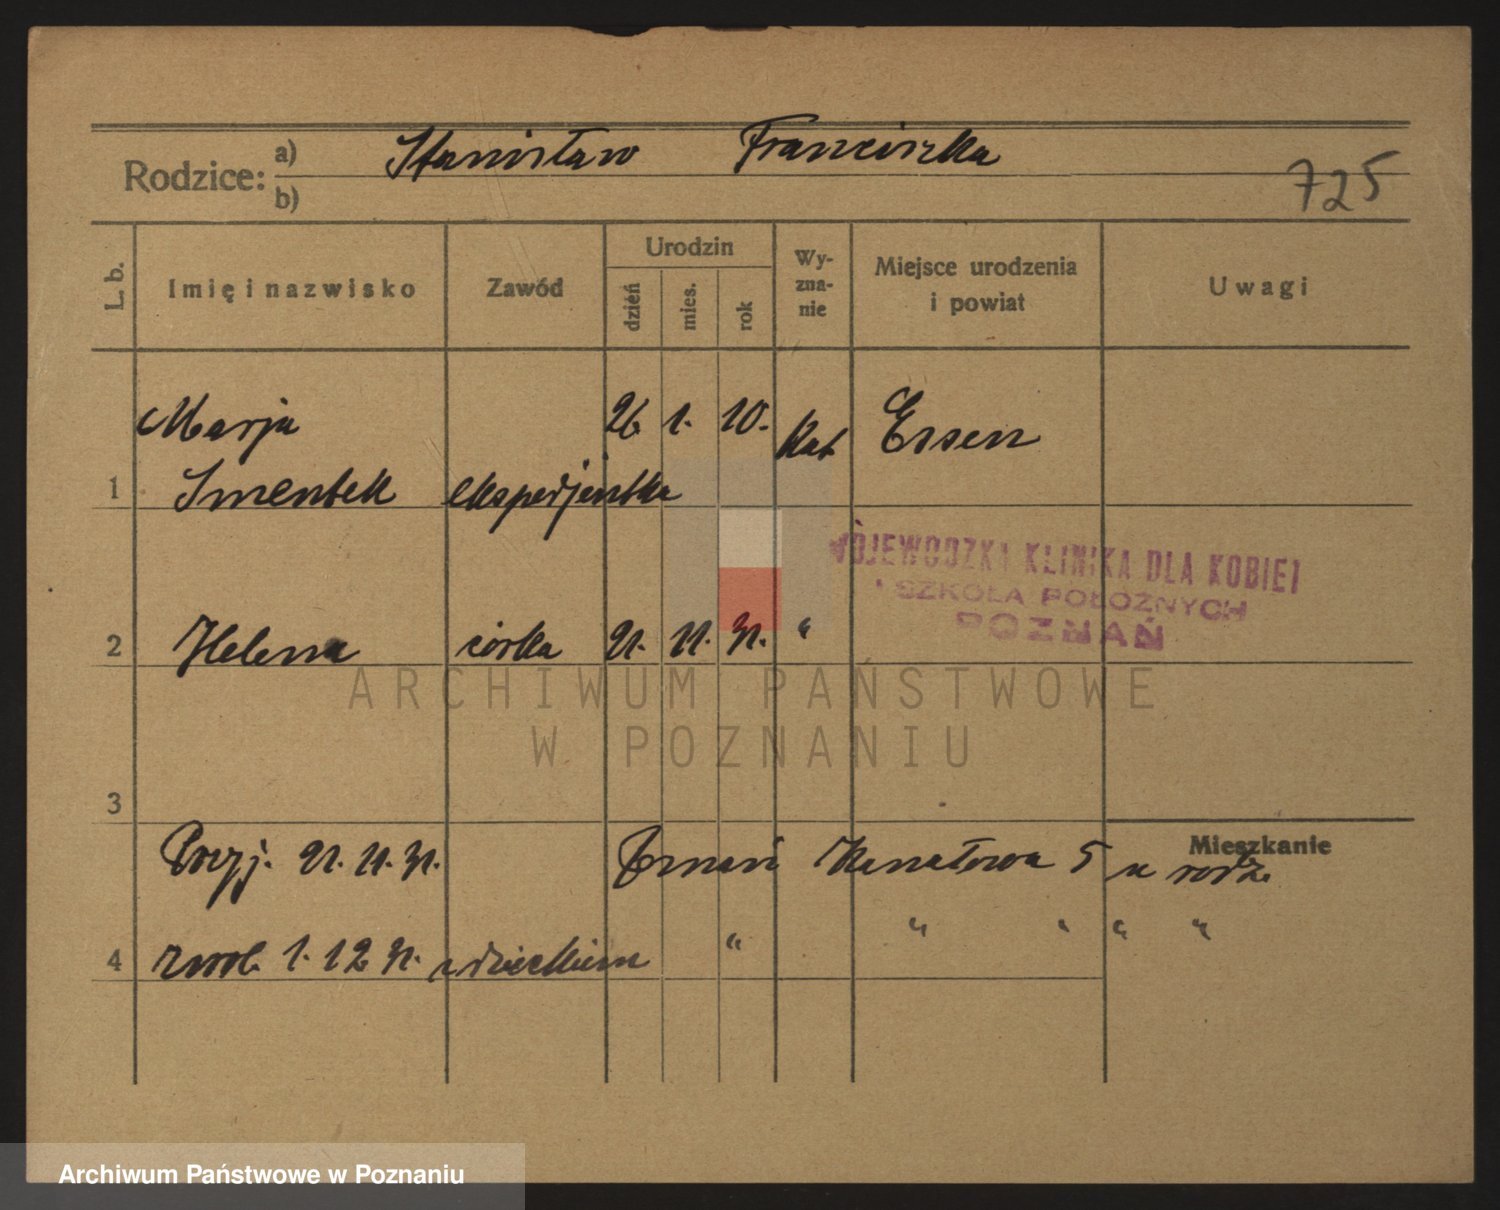 Rodzice: a) Stanisław Franciszka
b)
725
L. b.
Imię i nazwisko
Zawód
Urodzin
dzień
mies.
rok
Wy-
zna-
nie
Miejsce urodzenia
i powiat
Uwagi
Marja 26. 1. 10. kat Essen
1 Smentek ekspedjentka
WOJEWODZKA KLINIKA DLA KOBIET
i SZKOŁA POŁOŻNYCH
POZNAŃ
2 Helena córka 21. 11. 31. "
ARCHIWUM PAŃSTWOWE
W POZNANIU
3
Mieszkanie
Przyj. 21. 11. 31. Poznań Kanałowa 5 u rodz.
4 zwol. 1. 12 31. z dzieckiem " " " " "
Archiwum Państwowe w Poznaniu